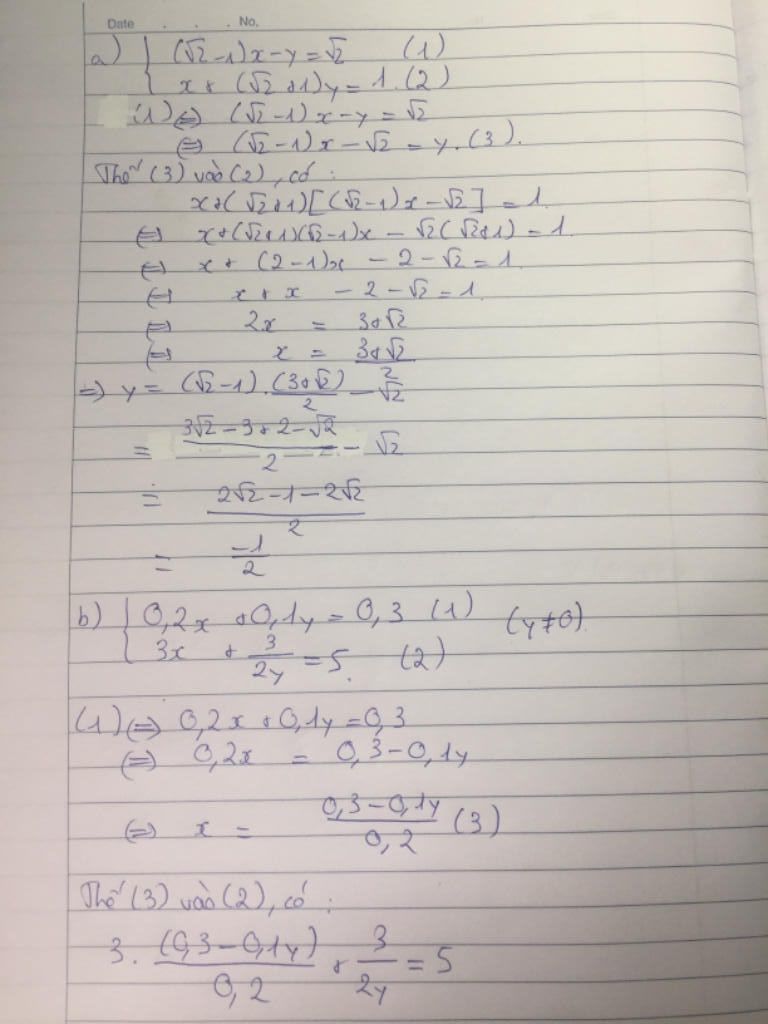 Date . . . No.
a) { (√2 -1)x - y = √2 (1)
x + (√2 +1)y = 1. (2)
(1) ⇔ (√2 -1) x - y = √2
⇔ (√2 -1)x - √2 = y. (3).
Thế (3) vào (2), có :
x + (√2 +1) [(√2 -1)x - √2] = 1.
⇔ x + (√2 +1)(√2 -1)x - √2(√2 +1) = 1.
⇔ x + (2 -1)x - 2 - √2 = 1.
⇔ x + x - 2 - √2 = 1.
⇔ 2x = 3+√2
⇔ x = (3+√2)/2
⇒ y = (√2 -1) . (3+√2)/2 - √2
= (3√2 - 3 + 2 - √2)/2 - √2
= (2√2 - 1 - 2√2)/2
= -1/2
b) { 0,2x + 0,1y = 0,3 (1) (y≠0)
3x + 3/2y = 5. (2)
(1) ⇔ 0,2x + 0,1y = 0,3
⇔ 0,2x = 0,3 - 0,1y
⇔ x = (0,3 - 0,1y)/0,2 (3)
Thế (3) vào (2), có :
3. (0,3 - 0,1y)/0,2 + 3/2y = 5